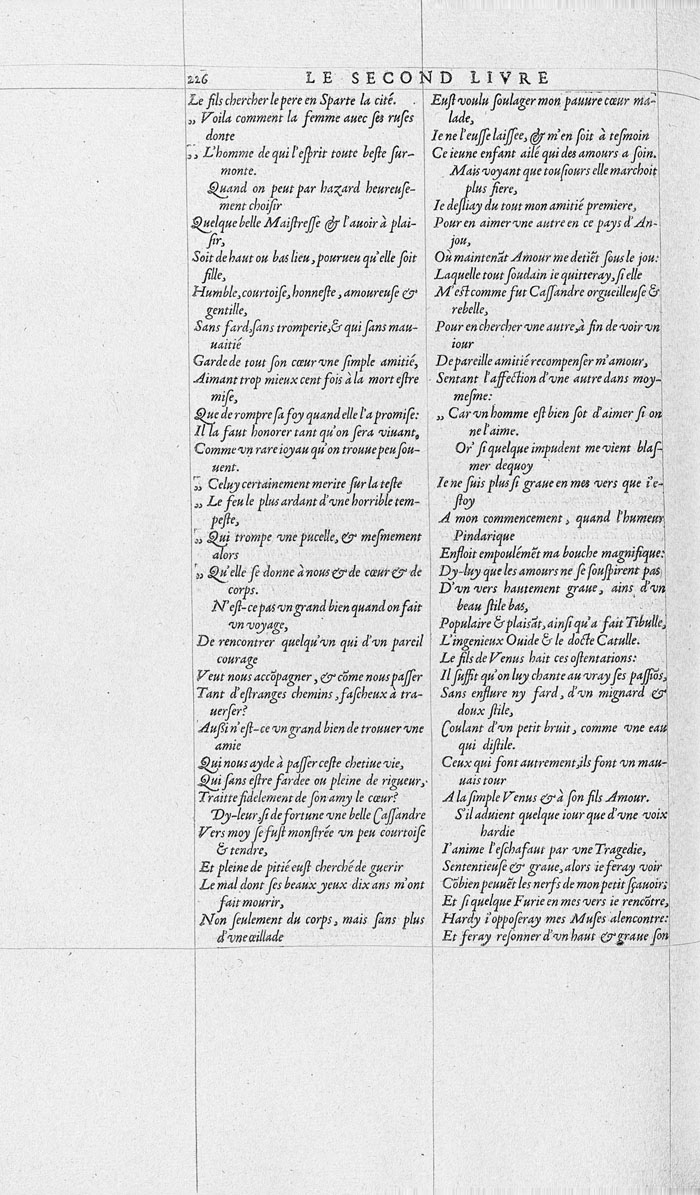 226
LE SECOND LIVRE
Le fils chercher le pere en Sparte la cité.
„ Voila comment la femme auec ſes ruſes
donte
„ L'homme de qui l'eſprit toute beſte ſur-
monte.
Quand on peut par hazard heureuſe-
ment choiſir
Quelque belle Maiſtreſſe & l'auoir à plai-
ſir,
Soit de haut ou bas lieu, pourueu qu'elle ſoit
fille,
Humble, courtoiſe, honneſte, amoureuſe &
gentille,
Sans fard, ſans tromperie, & qui ſans mau-
uaitié
Garde de tout ſon cœur vne ſimple amitié,
Aimant trop mieux cent fois à la mort eſtre
miſe,
Que de rompre ſa foy quand elle l'a promiſe:
Il la faut honorer tant qu'on ſera viuant,
Comme vn rare ioyau qu'on trouue peu ſou-
uent.
„ Celuy certainement merite ſur la teſte
„ Le feu le plus ardant d'vne horrible tem-
peſte,
„ Qui trompe vne pucelle, & meſmement
alors
„ Qu'elle ſe donne à nous & de cœur & de
corps.
N'eſt-ce pas vn grand bien quand on fait
vn voyage,
De rencontrer quelqu'vn qui d'vn pareil
courage
Veut nous accõpagner, & cõme nous paſſer
Tant d'eſtranges chemins, faſcheux à tra-
uerſer?
Außi n'eſt-ce vn grand bien de trouuer vne
amie
Qui nous ayde à paſſer ceſte chetiue vie,
Qui ſans eſtre fardee ou pleine de rigueur,
Traitte fidelement de ſon amy le cœur?
Dy-leur, ſi de fortune vne belle Caſſandre
Vers moy ſe fuſt monſtrée vn peu courtoiſe
& tendre,
Et pleine de pitié euſt cherché de guerir
Le mal dont ſes beaux yeux dix ans m'ont
fait mourir,
Non ſeulement du corps, mais ſans plus
d'vne œillade
Euſt voulu ſoulager mon pauure cœur ma-
lade,
Ie ne l'euſſe laiſſee, & m'en ſoit à teſmoin
Ce ieune enfant ailé qui des amours a ſoin.
Mais voyant que touſiours elle marchoit
plus fiere,
Ie deſliay du tout mon amitié premiere,
Pour en aimer vne autre en ce pays d'An-
jou,
Où maintenãt Amour me detiẽt ſous le jou:
Laquelle tout ſoudain ie quitteray, ſi elle
M'eſt comme fut Caſſandre orgueilleuſe &
rebelle,
Pour en chercher vne autre, à fin de voir vn
iour
De pareille amitié recompenſer m'amour,
Sentant l'affection d'vne autre dans moy-
meſme:
„ Car vn homme eſt bien ſot d'aimer ſi on
ne l'aime.
Or' ſi quelque impudent me vient blaſ-
mer dequoy
Ie ne ſuis plus ſi graue en mes vers que i'e-
ſtoy
A mon commencement, quand l'humeur
Pindarique
Enfloit empoulémẽt ma bouche magnifique:
Dy-luy que les amours ne ſe ſouſpirent pas
D'vn vers hautement graue, ains d'vn
beau ſtile bas,
Populaire & plaiſãt, ainſi qu'a fait Tibulle,
L'ingenieux Ouide & le docte Catulle.
Le fils de Venus hait ces oſtentations:
Il ſuffit qu'on luy chante au vray ſes paſſiõs,
Sans enflure ny fard, d'vn mignard &
doux ſtile,
Coulant d'vn petit bruit, comme vne eau
qui diſtile.
Ceux qui font autrement, ils font vn mau-
uais tour
A la ſimple Venus & à ſon fils Amour.
S'il aduient quelque iour que d'vne voix
hardie
I'anime l'eſchafaut par vne Tragedie,
Sententieuſe & graue, alors ie feray voir
Cõbien peuuẽt les nerfs de mon petit ſçauoir;
Et ſi quelque Furie en mes vers ie rencõtre,
Hardy i'oppoſeray mes Muſes alencontre:
Et feray reſonner d'vn haut & graue ſon